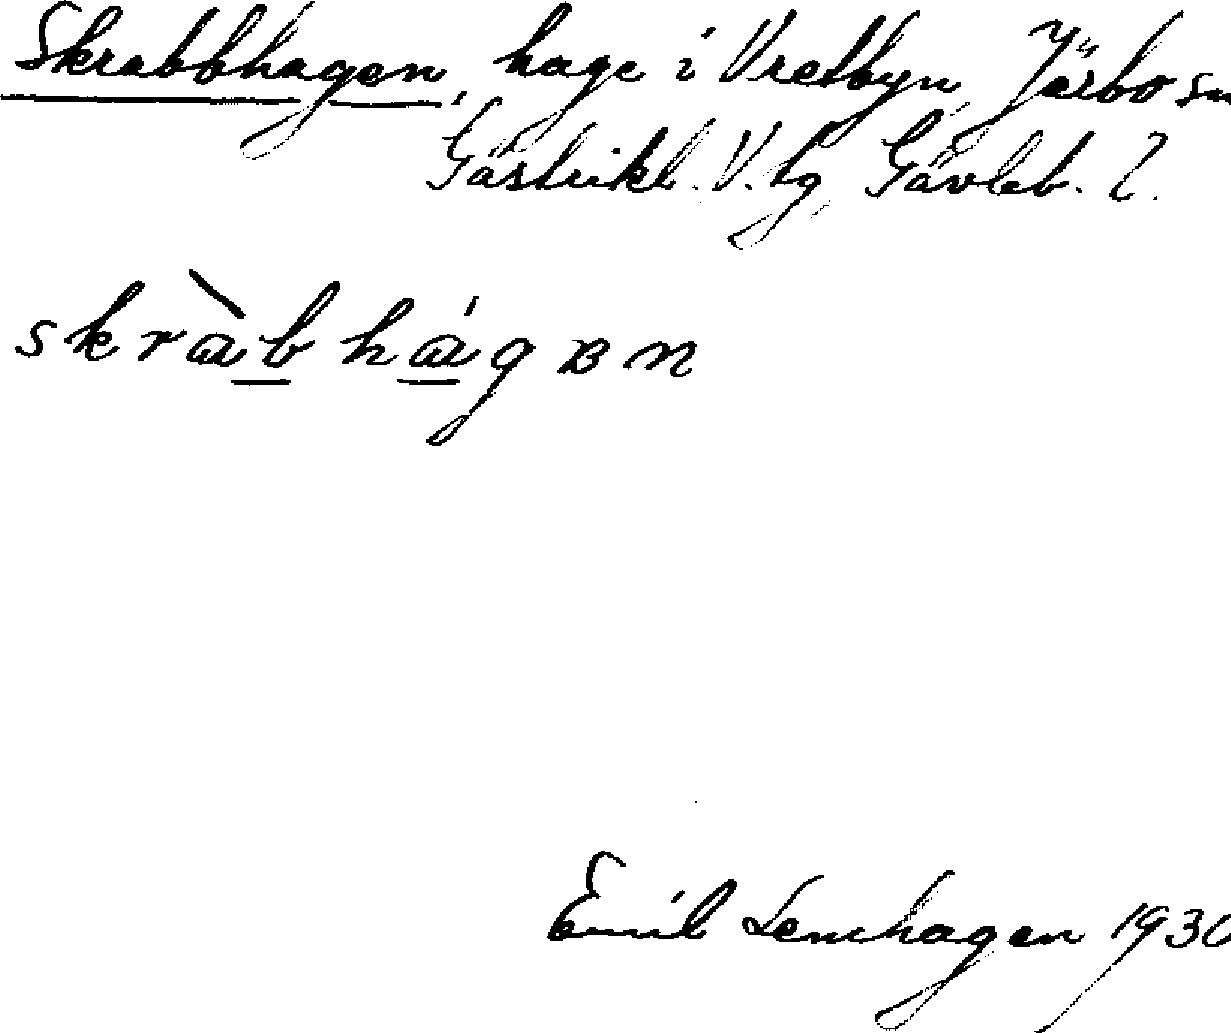 Skrabbhagen, hage i Vretbyn, Järbo sn
Gästrikl. V. tg, Gävleb. l.
skràbhágɐn
Emil Lenhagen 1930